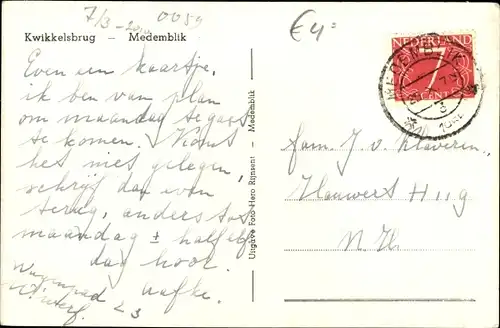 7/3-
0059
€4=
Kwikkelsbrug — Medemblik
Even een kaartje,
ik ben van plan
om maandag te gast
te komen. Komt
het niet gelegen,
schrijf dan even
terug, anders tot
maandag ± half elf
dag hoor.
Aafke.
23
Uitgave Foto Hero Rijnsent — Medemblik
NEDERLAND
7
CENT
MEDEMBLIK
Fam. J. v. Klaveren.
Hauwert H 119
N.H.